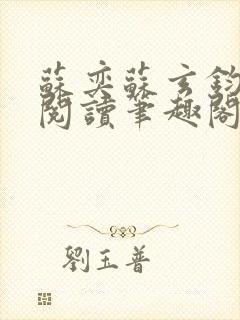 蘇奕蘇玄鈞
閱讀筆趣閣
劉玉普